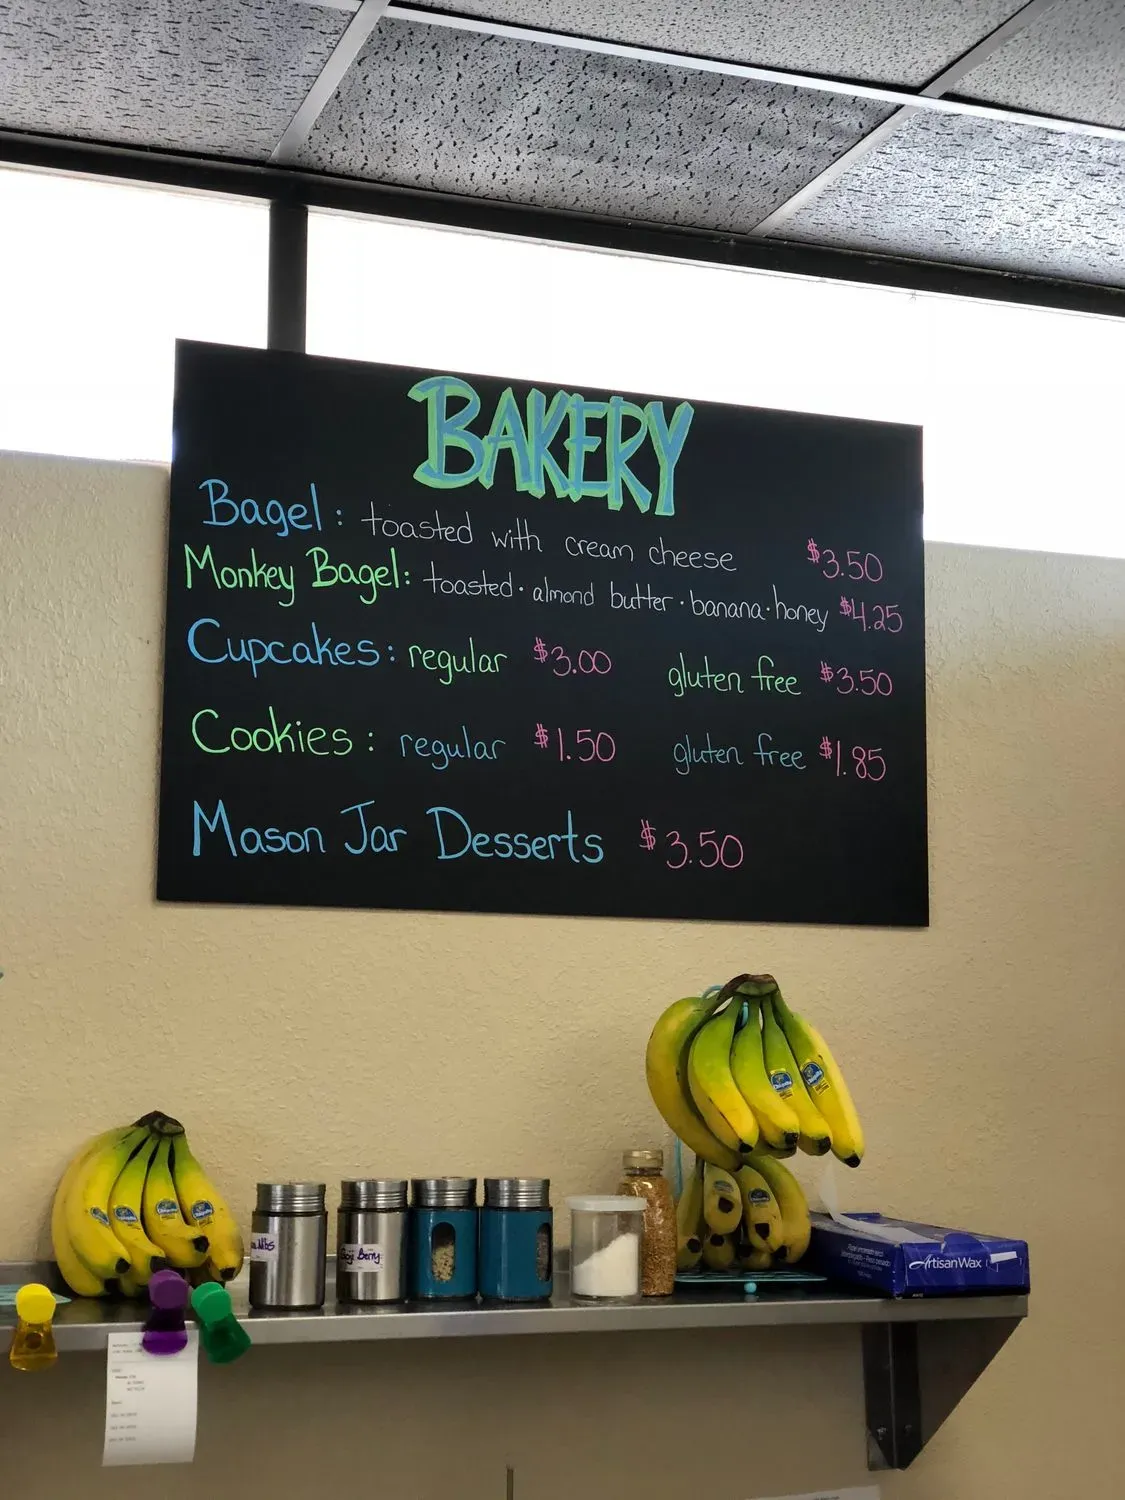 BAKERY
Bagel: toasted with cream cheese $3.50
Monkey Bagel: toasted · almond butter · banana · honey $4.25
Cupcakes: regular $3.00 gluten free $3.50
Cookies: regular $1.50 gluten free $1.85
Mason Jar Desserts $3.50
Nibs
Goji Berry
ArtisanWax